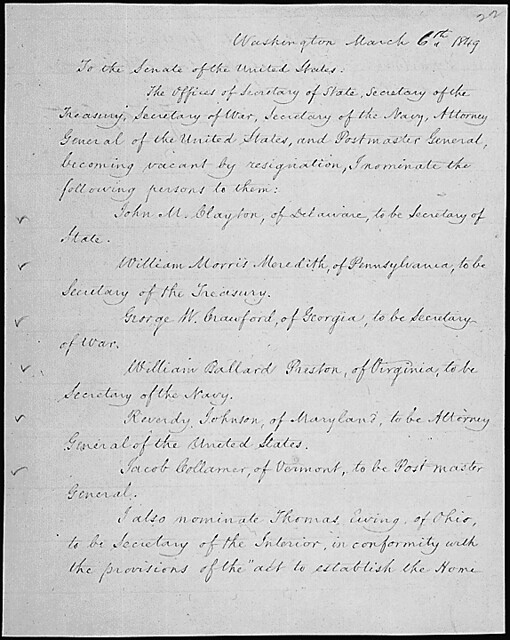 22
Washington March 6th 1849
To the Senate of the United States:
The Offices of Secretary of State, Secretary of the
Treasury, Secretary of War, Secretary of the Navy, Attorney
General of the United States, and Postmaster General,
becoming vacant by resignation, I nominate the
following persons to them:
John M. Clayton, of Delaware, to be Secretary of
State.
William Morris Meredith, of Pennsylvania, to be
Secretary of the Treasury.
George W. Crawford, of Georgia, to be Secretary
of War.
William Ballard Preston, of Virginia, to be
Secretary of the Navy.
Reverdy Johnson, of Maryland, to be Attorney
General of the United States.
Jacob Collamer, of Vermont, to be Post master
General.
I also nominate Thomas Ewing, of Ohio,
to be Secretary of the Interior, in conformity with
the provisions of the "act to establish the Home